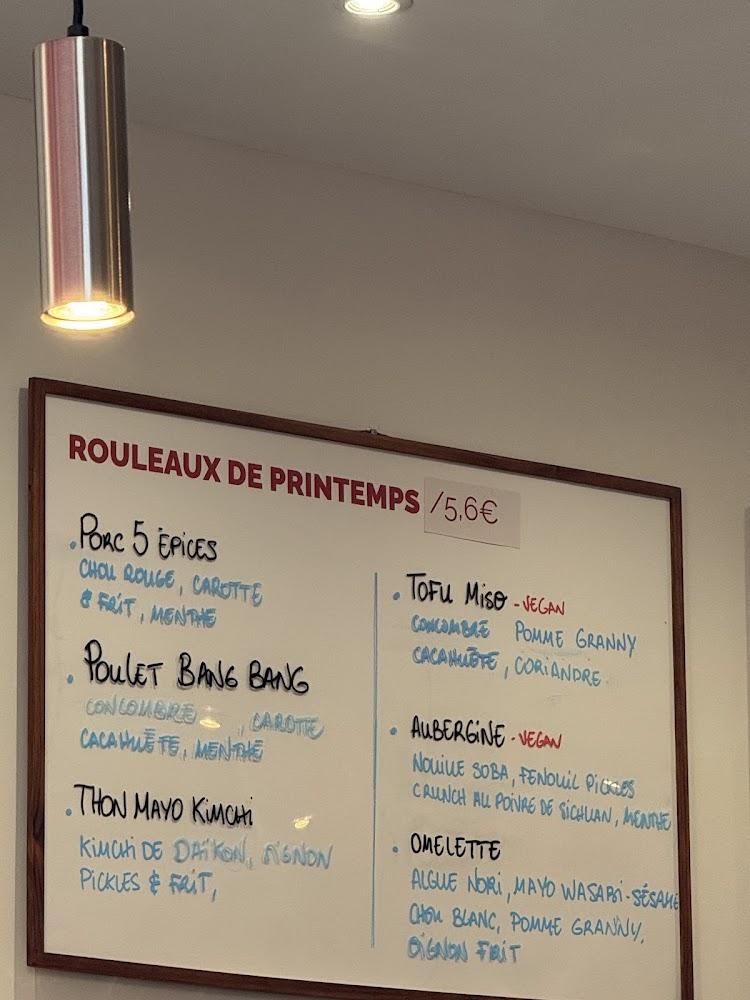 ROULEAUX DE PRINTEMPS /5,6€
. PORC 5 ÉPICES
CHOU ROUGE, CAROTTE
& FRIT, MENTHE
. POULET BANG BANG
CONCOMBRE , CAROTTE
CACAHUÈTE, MENTHE
. THON MAYO KIMCHI
KIMCHI DE DAÏKON, OIGNON
PICKLES & FRIT,
. TOFU MISO - VEGAN
CONCOMBRE POMME GRANNY
CACAHUÈTE, CORIANDRE
. AUBERGINE - VEGAN
NOUILLE SOBA, FENOUIL PICKLES
CRUNCH AU POIVRE DE SICHUAN, MENTHE
. OMELETTE
ALGUE NORI, MAYO WASABI-SÉSAME
CHOU BLANC, POMME GRANNY,
OIGNON FRIT